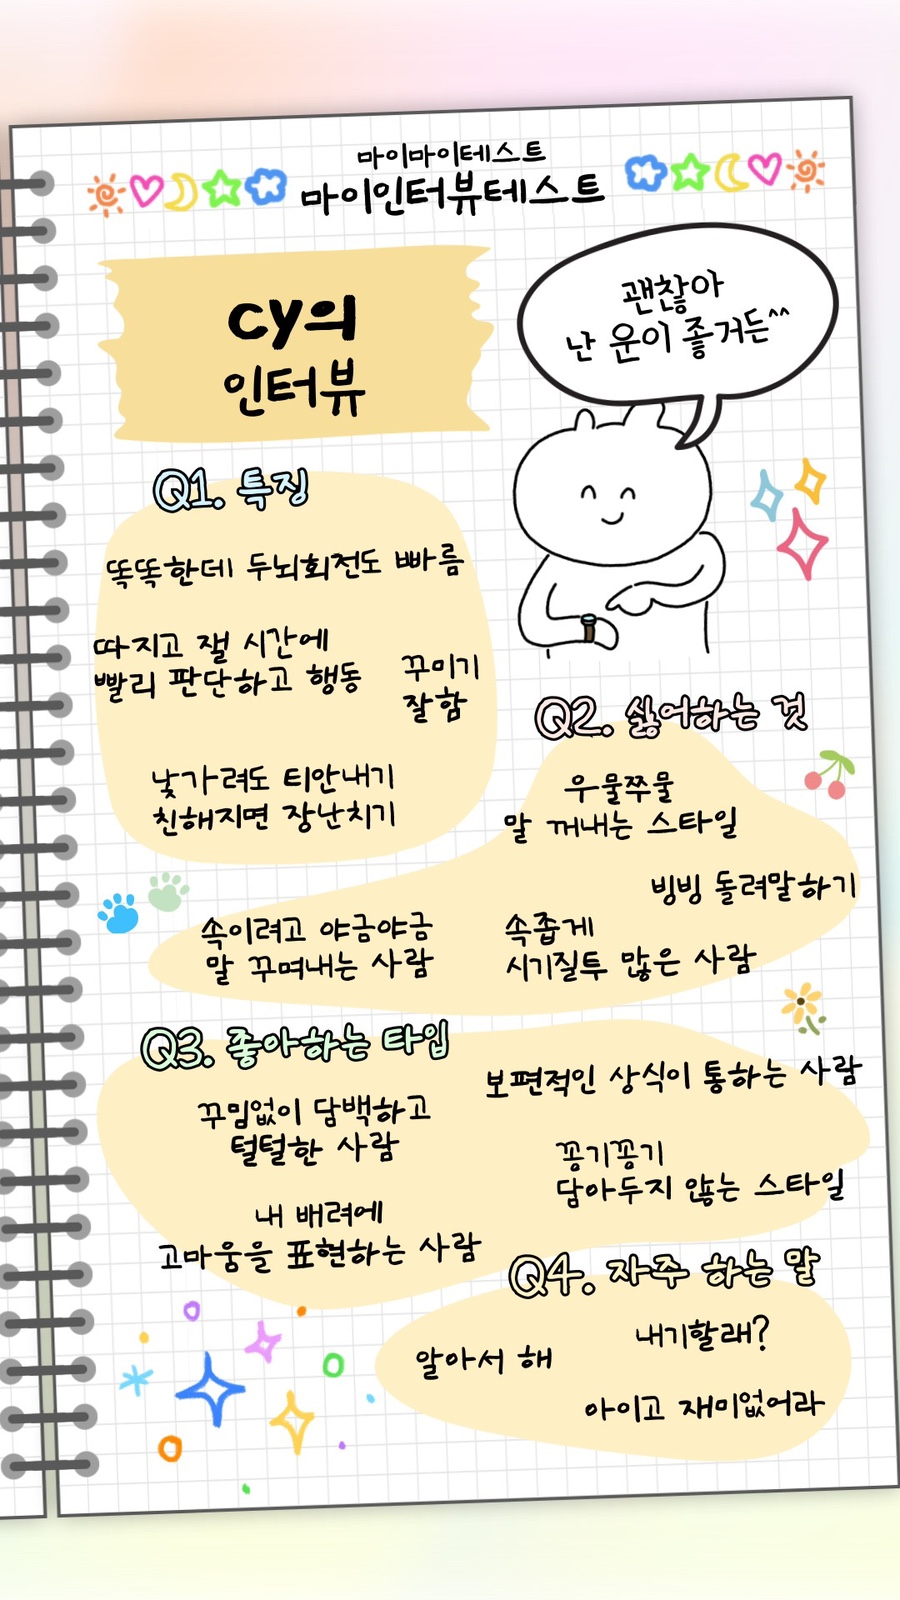 마이마이테스트
마이인터뷰테스트
cy의
인터뷰
괜찮아
난 운이 좋거든^^
Q1. 특징
똑똑한데 두뇌회전도 빠름
따지고 잴 시간에
빨리 판단하고 행동
꾸미기
잘함
낯가려도 티안내기
친해지면 장난치기
Q2. 싫어하는 것
우물쭈물
말 꺼내는 스타일
빙빙 돌려말하기
속이려고 야금야금
말 꾸며내는 사람
속좁게
시기질투 많은 사람
Q3. 좋아하는 타입
보편적인 상식이 통하는 사람
꾸밈없이 담백하고
털털한 사람
꽁기꽁기
담아두지 않는 스타일
내 배려에
고마움을 표현하는 사람
Q4. 자주 하는 말
내기할래?
알아서 해
아이고 재미없어라